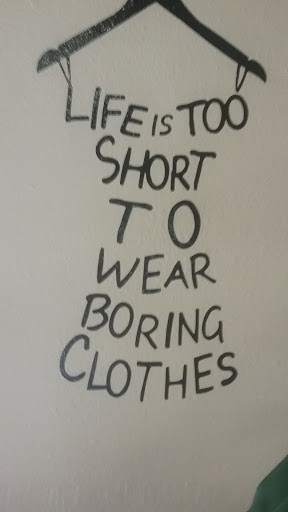 LIFE IS TOO
SHORT
TO
WEAR
BORING
CLOTHES